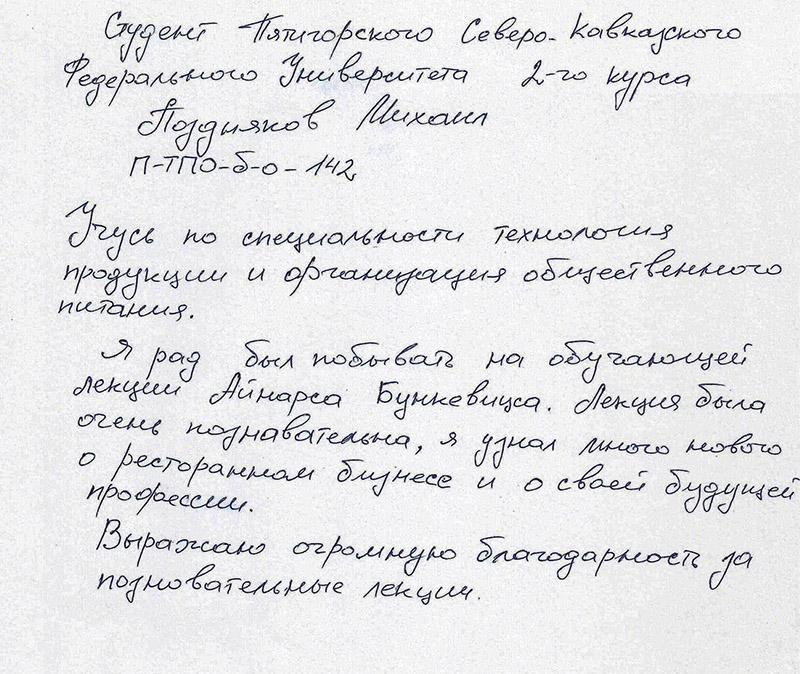 Студент Пятигорского Северо-Кавказского
Федерального Университета 2-го курса
Поздняков Михаил
П-ТПО-б-о-142
Учусь по специальности технология
продукции и организация общественного
питания.
Я рад был побывать на обучающей
лекции Айнарса Бункевица. Лекция была
очень познавательна, я узнал много нового
о ресторанном бизнесе и о своей будущей
профессии.
Выражаю огромную благодарность за
позновательные лекции.